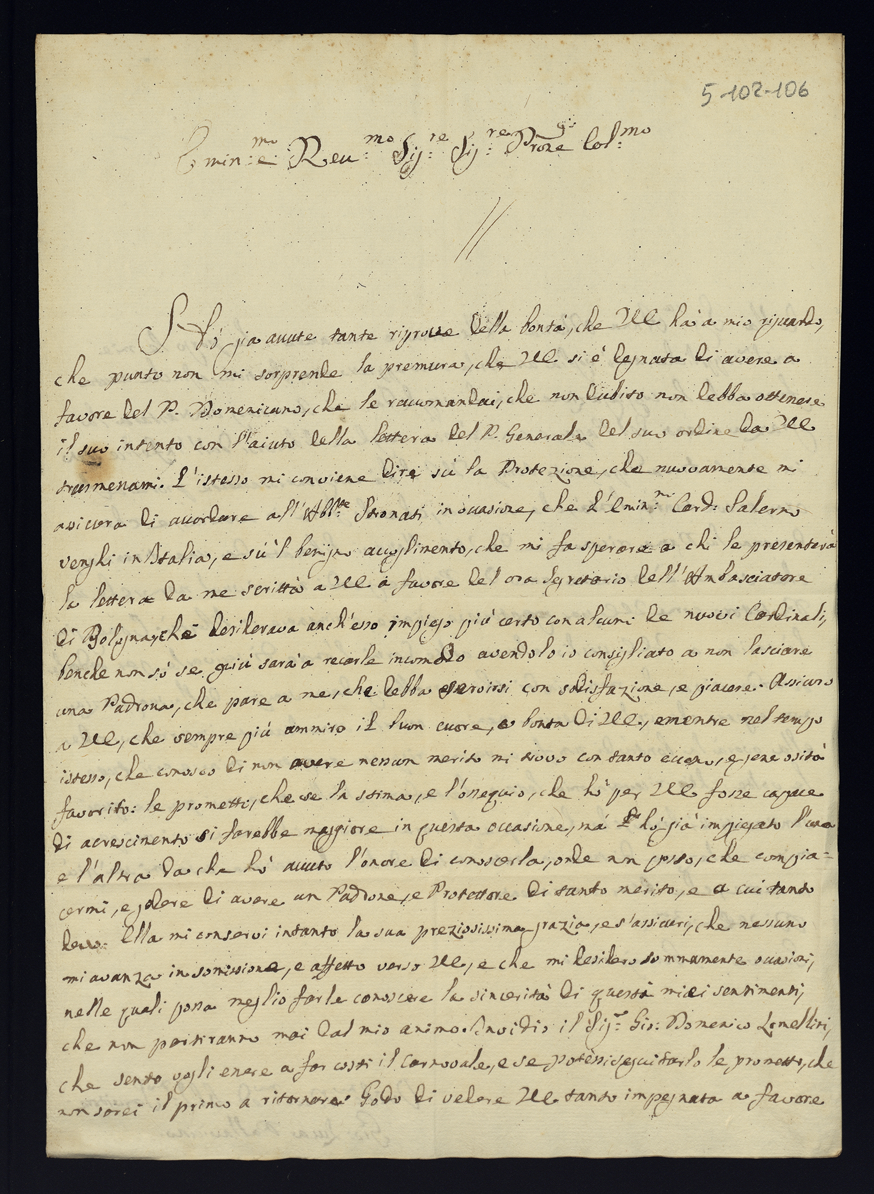 5-102-106
Emin:mo e Reu:mo Sig:re Sig:re Prone Col:mo
Hó gia auute tante riproue della bontá, che VE ha à mio riguardo,
che punto non mi sorprende la premura, che VE si é degnata di avere a
favore del P. Domenicano, che le racomandai, che non dubito non debba ottenere
il suo intento con l'aiuto della lettera del P. Generale del suo ordine da VE
trasmenami. L'istesso mi conviene dire sú la Protezione, che nuovamente mi
asicura di accordare all'Abb:te Stronati in occasione, che L'Emin:mo Card: Salerno
venghi in Italia, e sú'l benigno accoglimento, che mi fa sperare a chi le presenterà
la lettera da me scritta a VE á favore del ora Segretario dell'Ambasciatore
di Bologna, che desiderava anch'esso impiego piú certo con alcuni de nuovi Cardinali,
benche non só se piú sará a recarle incomodo avendolo io consigliato a non lasciare
una Padrona, che pare a me, che debba servirsi con sodisfazione, e piacere. Assicuro
a VE, che sempre piú ammiro il buon cuore, e bontá di VE, e mentre nel tempo
istesso, che conosco di non avere nessun merito mi trovo con tanto eccesso, e generositá
favorito: le prometto, che se la stima, e l'ossequio, che hó per VE fosse capace
di acrescimento si farebbe maggiore in questa occasione, má hó giá impiegato l'una
e l'altra da che hó avuto l'onore di conoscerla, onde non posso, che compia=
cermi, e godere di avere un Padrone, e Protettore di tanto merito, e a cui tanto
devo. Ella mi conservi intanto la sua preziosissima grazia, e s'assicuri, che nessuno
mi avanza in somissione, e affetto verso VE, e che mi desidero sommamente occasioni,
nelle quali possa meglio farle conoscere la sinceritá di questi miei sentimenti,
che non partiranno mai dal mio animo. Invidio il Sig:r Gio: Domenico Lomellini,
che sento vogli enere a far costi il Carnovale, e se potessi seguitarlo le prometto, che
non sarei il primo a ritornare. Godo di vedere VE tanto impegnata a favore